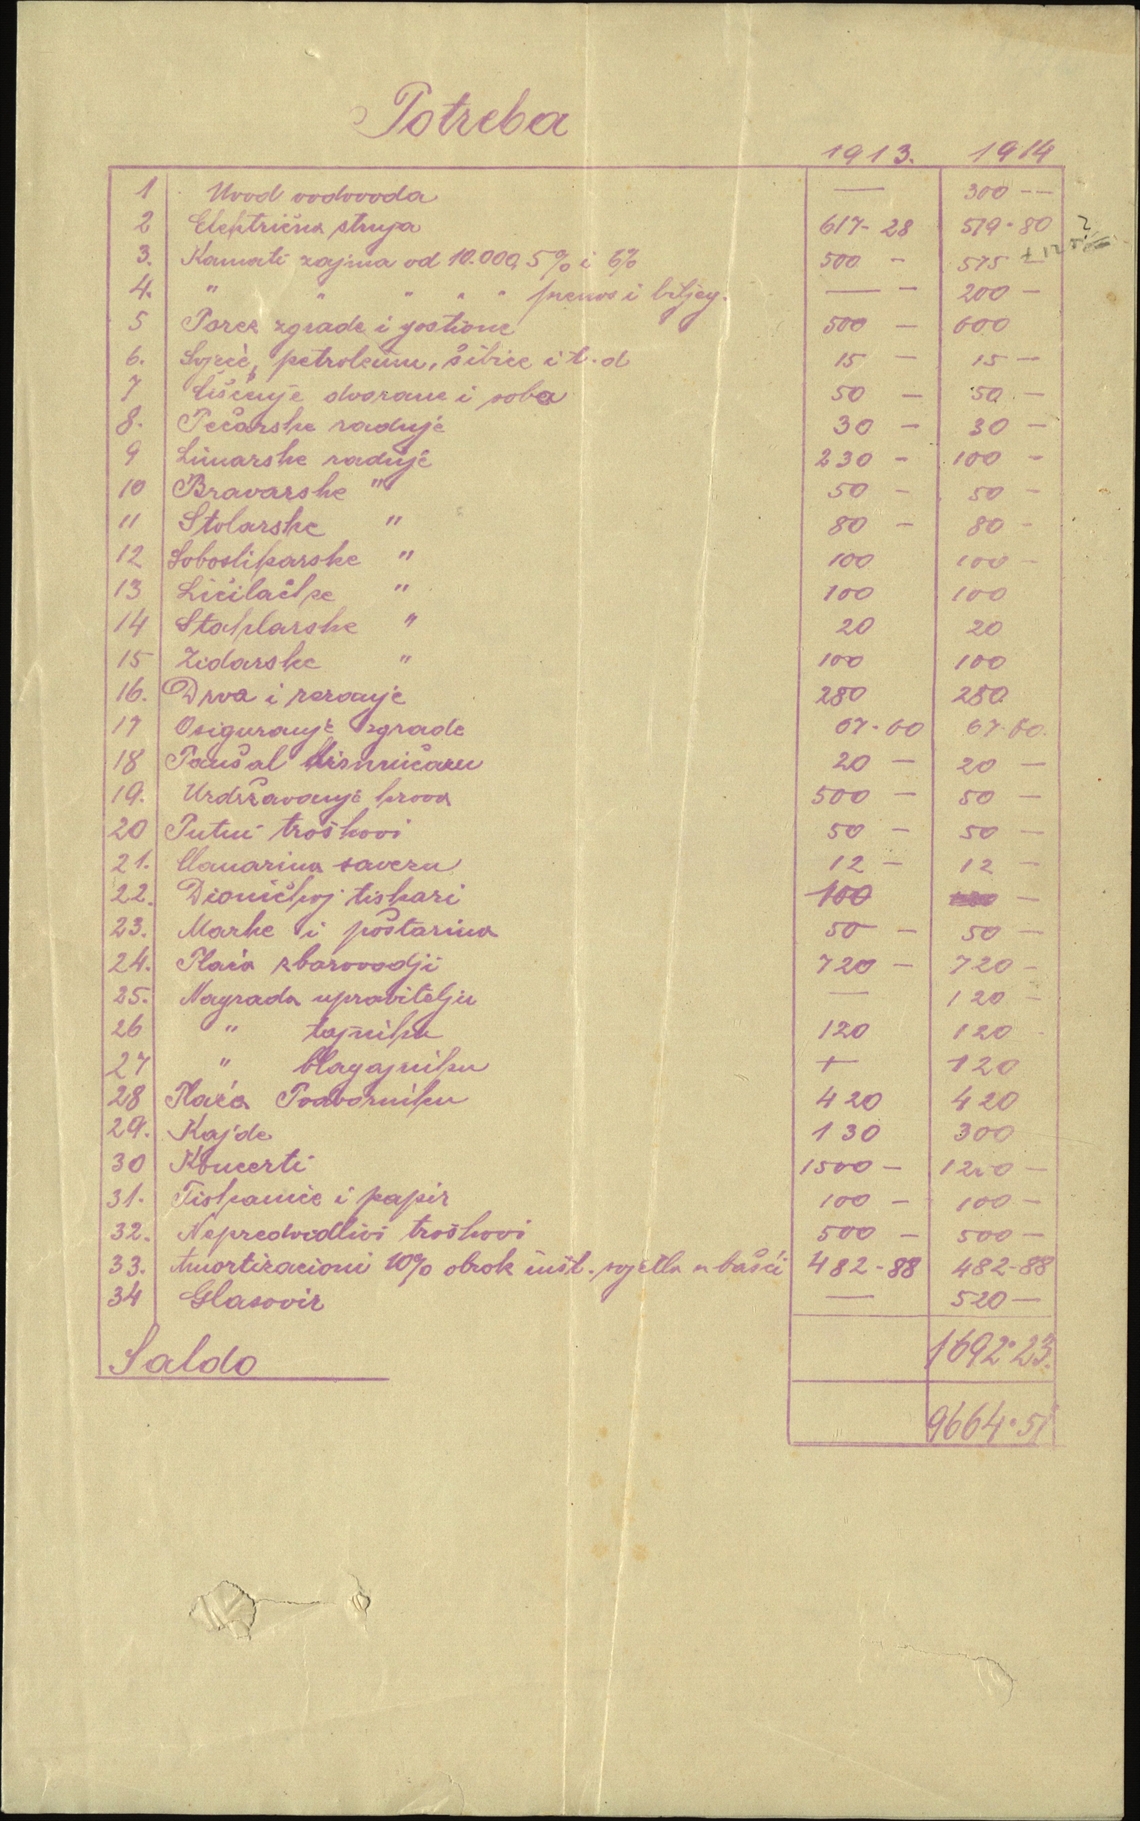 Potreba
1913. 1914
1 Uvod vodovoda — 300 —
2 Električna struja 617-28 519·80 ?
3. Kamati zajma od 10.000, 5% i 6% 500 — 575 —
4. " " " " " prenos i biljeg. — 200 —
5 Porez zgrade i gostione 500 — 600
6. Svjeće, petroleum, šibice i t. d 15 — 15 —
7 Čišćenje dvorane i soba 50 — 50 —
8. Pečarske radnje 30 — 30 —
9 Limarske radnje 230 — 100 —
10 Bravarske " 50 — 50 —
11 Stolarske " 80 — 80 —
12 Soboslikarske " 100 100 —
13 Ličilačke " 100 100
14 Staklarske " 20 20
15 Zidarske " 100 100
16. Drva i rezanje 280 280
17 Osiguranje zgrade 67-60 67-60.
18 Paušal dimničaru 20 — 20 —
19. Uzdržavanje krova 500 — 50 —
20 Putni troškovi 50 — 50 —
21. Članarina savezu 12 — 12 —
22. Dioničkoj tiskari 100 —
23. Marke i poštarina 50 — 50 —
24. Plaća zborovodji 720 — 720 —
25. Nagrada upravitelju — 120 —
26 " tajniku 120 120
27 " blagajniku + 120
28 Plaća Podvorniku 420 420
29. Kajde 130 300
30 Koncerti 1500 — 1200 —
31. Tiskanice i papir 100 — 100 —
32. Nepredvidlivi troškovi 500 — 500 —
33. Amortizacioni 10% obrok inšt. svjetla u bašći 482-88 482-88
34 Glasovir — 520 —
Saldo 1692·23.
9664·51